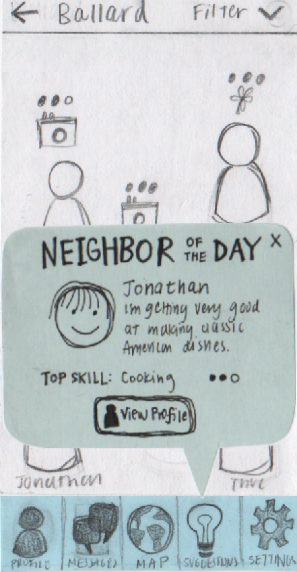 ← Ballard Filter ✓
NEIGHBOR OF THE DAY X
Jonathan
im getting very good
at making classic
American dishes.
TOP SKILL: Cooking
View Profile
Jonathan
PROFILE MESSAGES MAP SUGGESTIONS SETTINGS